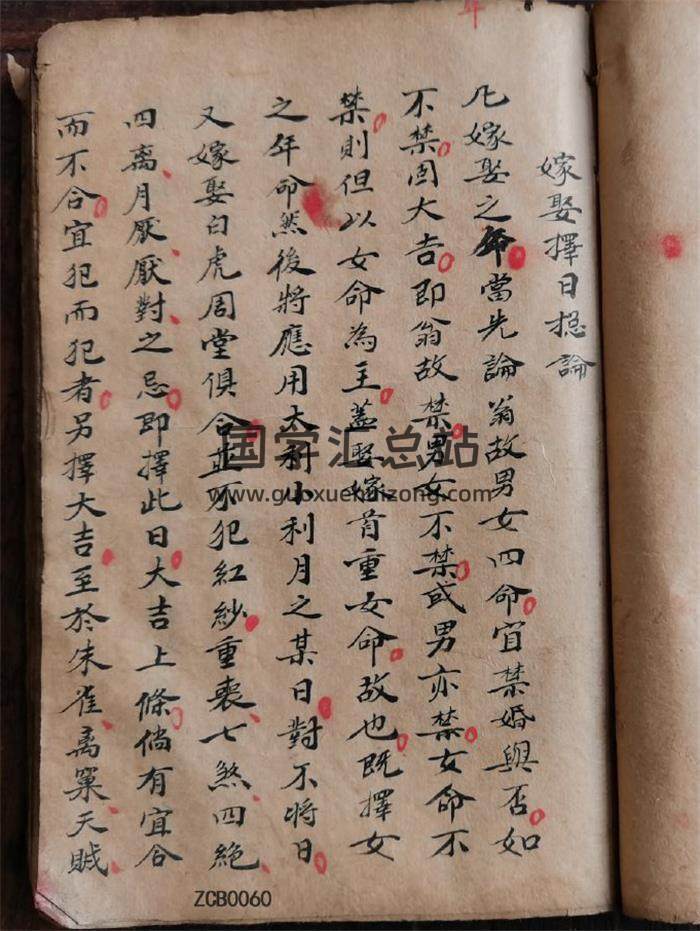 年
嫁娶擇日捴論
凡嫁娶之年當先論翁故男女四命宜禁婚與否如
不禁固大吉即翁故禁男女不禁或男亦禁女命不
禁則但以女命為主蓋娶嫁首重女命故也既擇女
之年命然後將應用大利小利月之某日對不将日
又嫁娶白虎周堂俱合並不犯紅紗重喪七煞四絕
四离月厭厭對之忌即擇此日大吉上條倘有宜合
而不合宜犯而犯者另擇大吉至於朱雀离窠天賊
国学汇总站
www.guoxuehuizong.com
ZCB0060